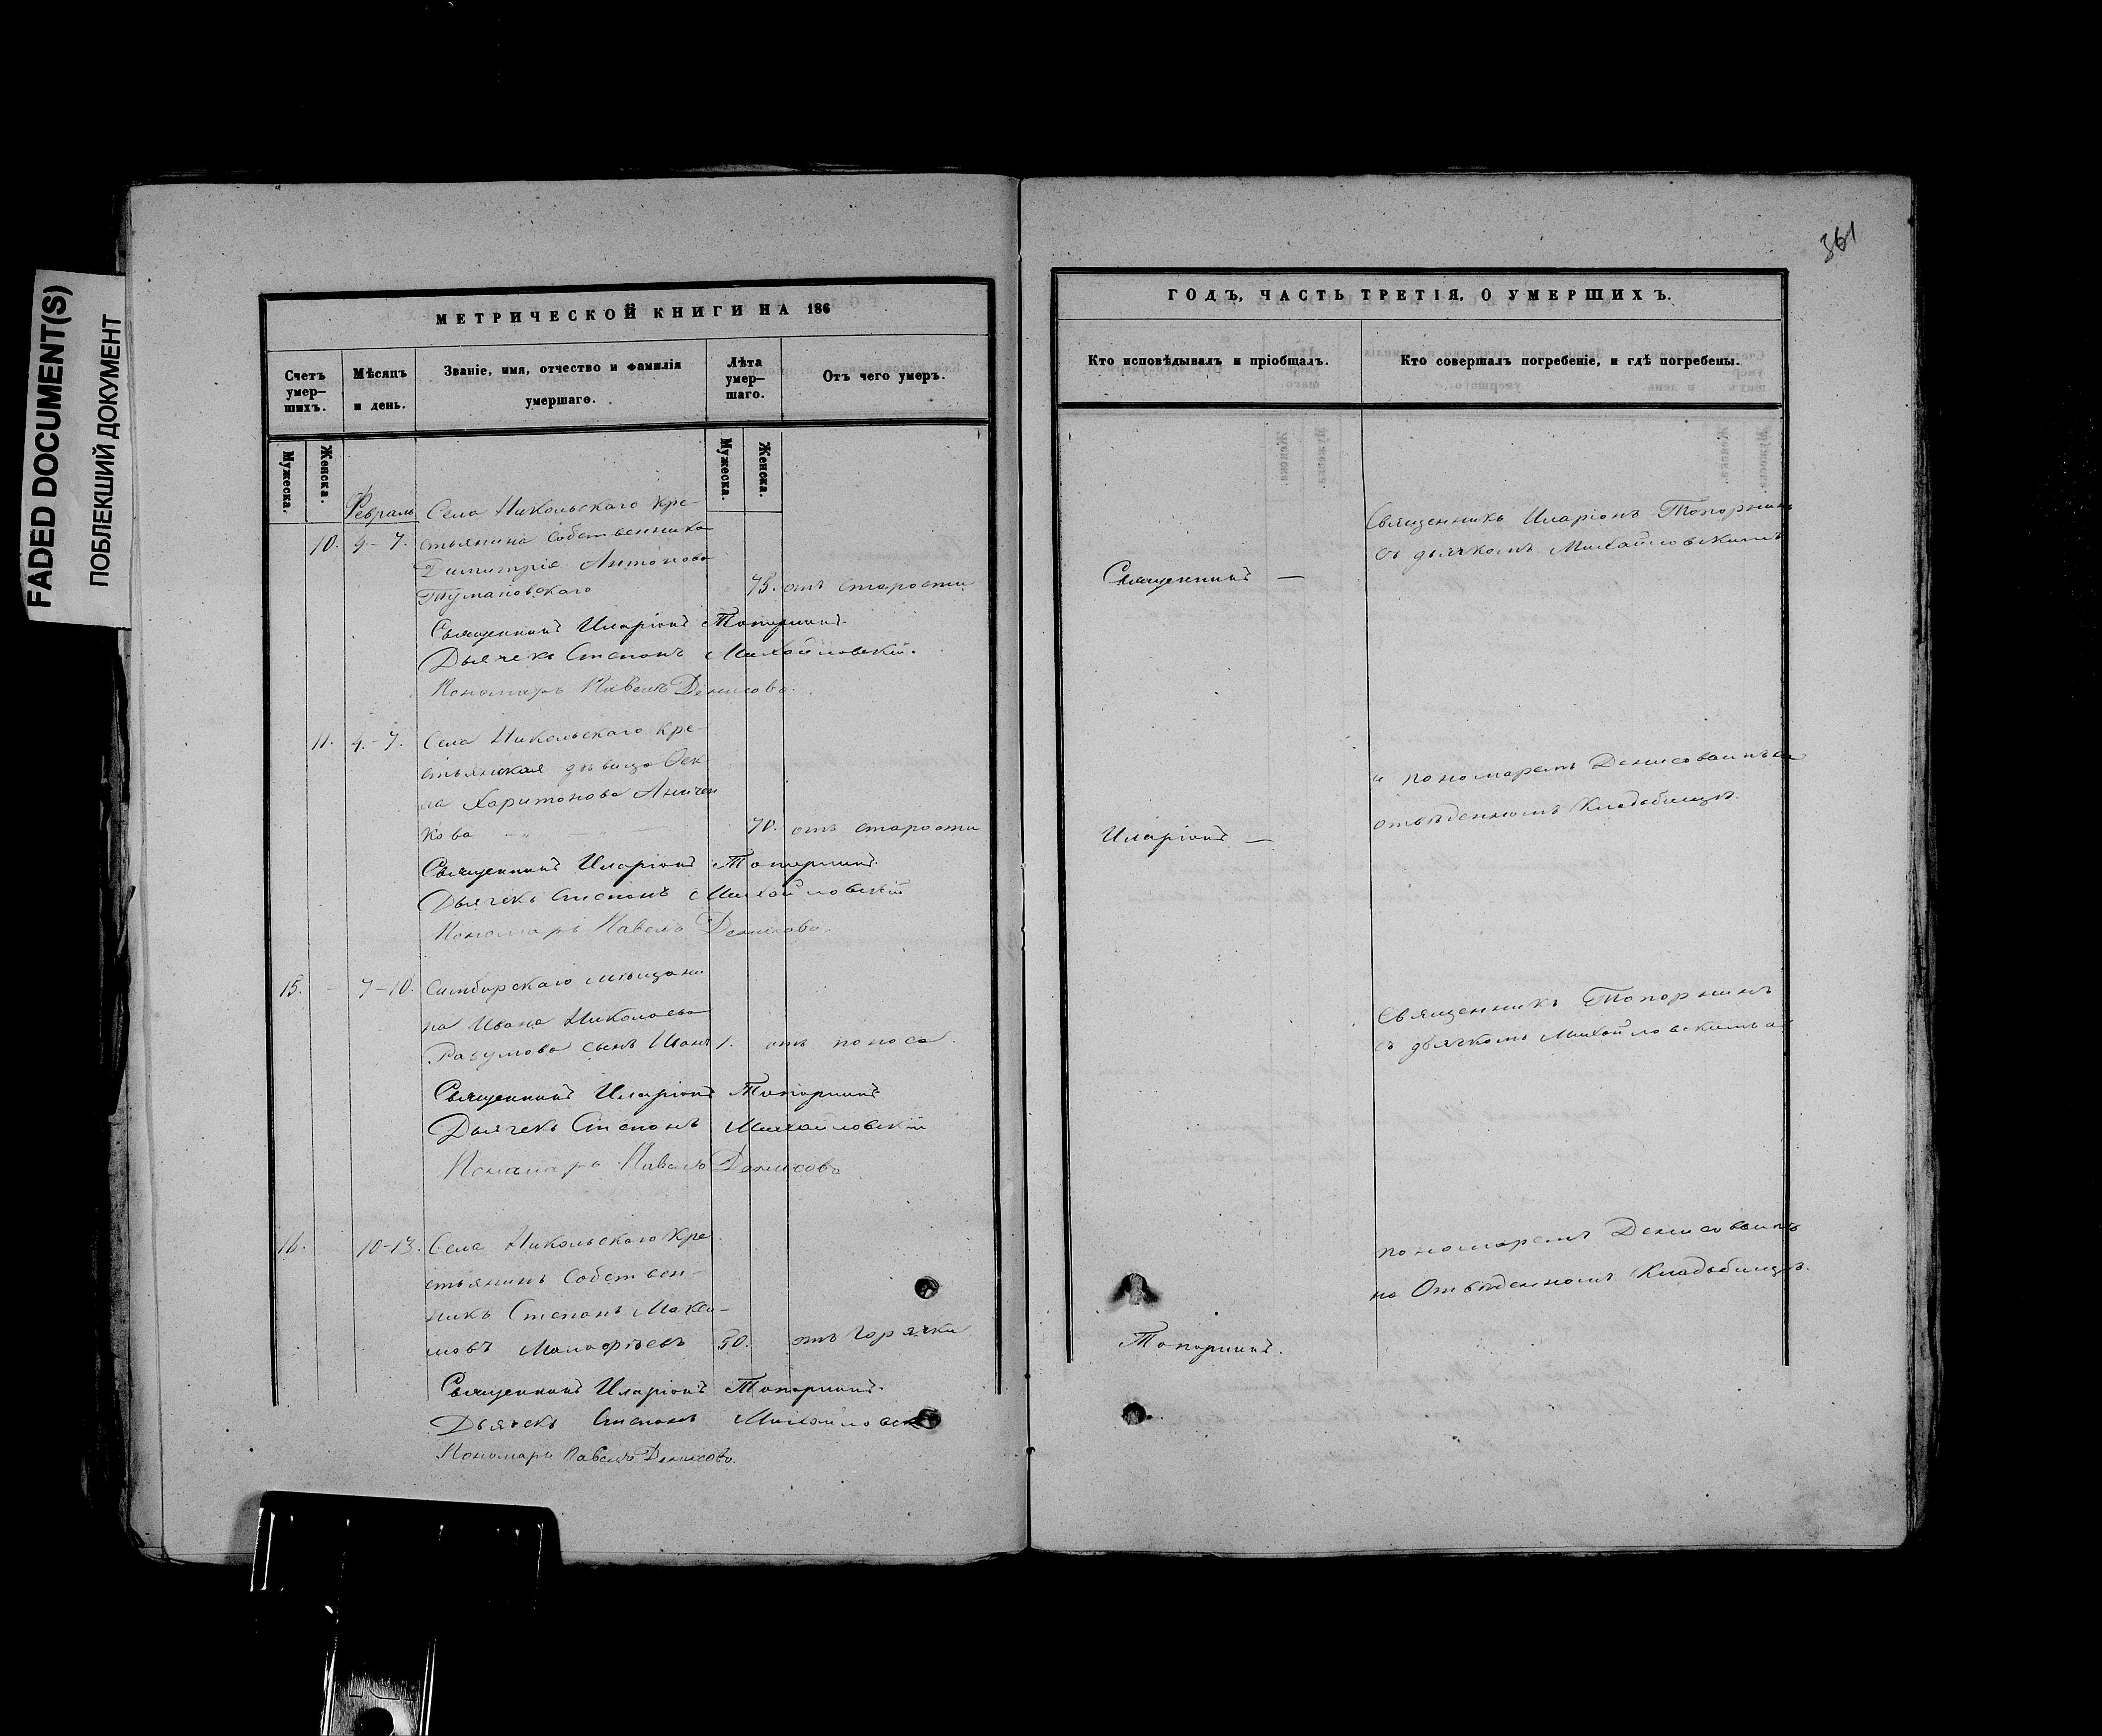 FADED DOCUMENT(S)
ПОБЛЕКШИЙ ДОКУМЕНТ
361
МЕТРИЧЕСКОЙ КНИГИ НА 186
Счетъ умер–шихъ.
Мѣсяцъ и день.
Званіе, имя, отчество и фамилія умершаго.
Лѣта умер–шаго.
Отъ чего умеръ.
Мужеска.
Женска.
Мужеска.
Женска.
Февраль
Села Никольскаго кре-
10. 4-7. стьянина собственника
Димитрія Антонова
Тумановскаго 75. отъ старости
Священникъ Иларіонъ Топорнинъ.
Дьячекъ Степанъ Михайловскій.
Пономарь Павелъ Денисовъ.
11. 4.-7. Села Никольскаго кре-
стьянская дѣвица Фек
ла Харитонова Аничен
кова 70. отъ старости
Священникъ Иларіонъ Топорнинъ.
Дьячекъ Степанъ Михайловскій
Пономарь Павелъ Денисовъ.
15. - 7-10. Симбирскаго мѣщани
на Ивана Николаева
Разумова сынъ Иоанъ 1. отъ поноса.
Священникъ Иларіонъ Топорнинъ
Дьячекъ Степанъ Михайловскій
Пономарь Павелъ Денисовъ
16. 10-13. Села Никольскаго кре
стьянинъ собствен-
никъ Степанъ Макси-
мовъ 50. отъ горячки
Священникъ Иларіонъ Топорнинъ.
Дьячекъ Степанъ
Пономарь Павелъ Денисовъ.
ГОДЪ, ЧАСТЬ ТРЕТІЯ, О УМЕРШИХЪ.
Кто исповѣдывалъ и пріобщалъ.
Кто совершалъ погребеніе, и гдѣ погребены.
Священникъ Иларіонъ Топорнинъ
съ дьячкомъ Михайловскимъ
Священникъ —
и пономаремъ Денисовымъ на
отвѣденномъ Кладбищѣ.
Иларіонъ —
Священникъ Топорнинъ
съ дьячкомъ Михайловскимъ и
пономаремъ Денисовымъ
на Отвѣденномъ Кладбищѣ.
Топорнинъ.